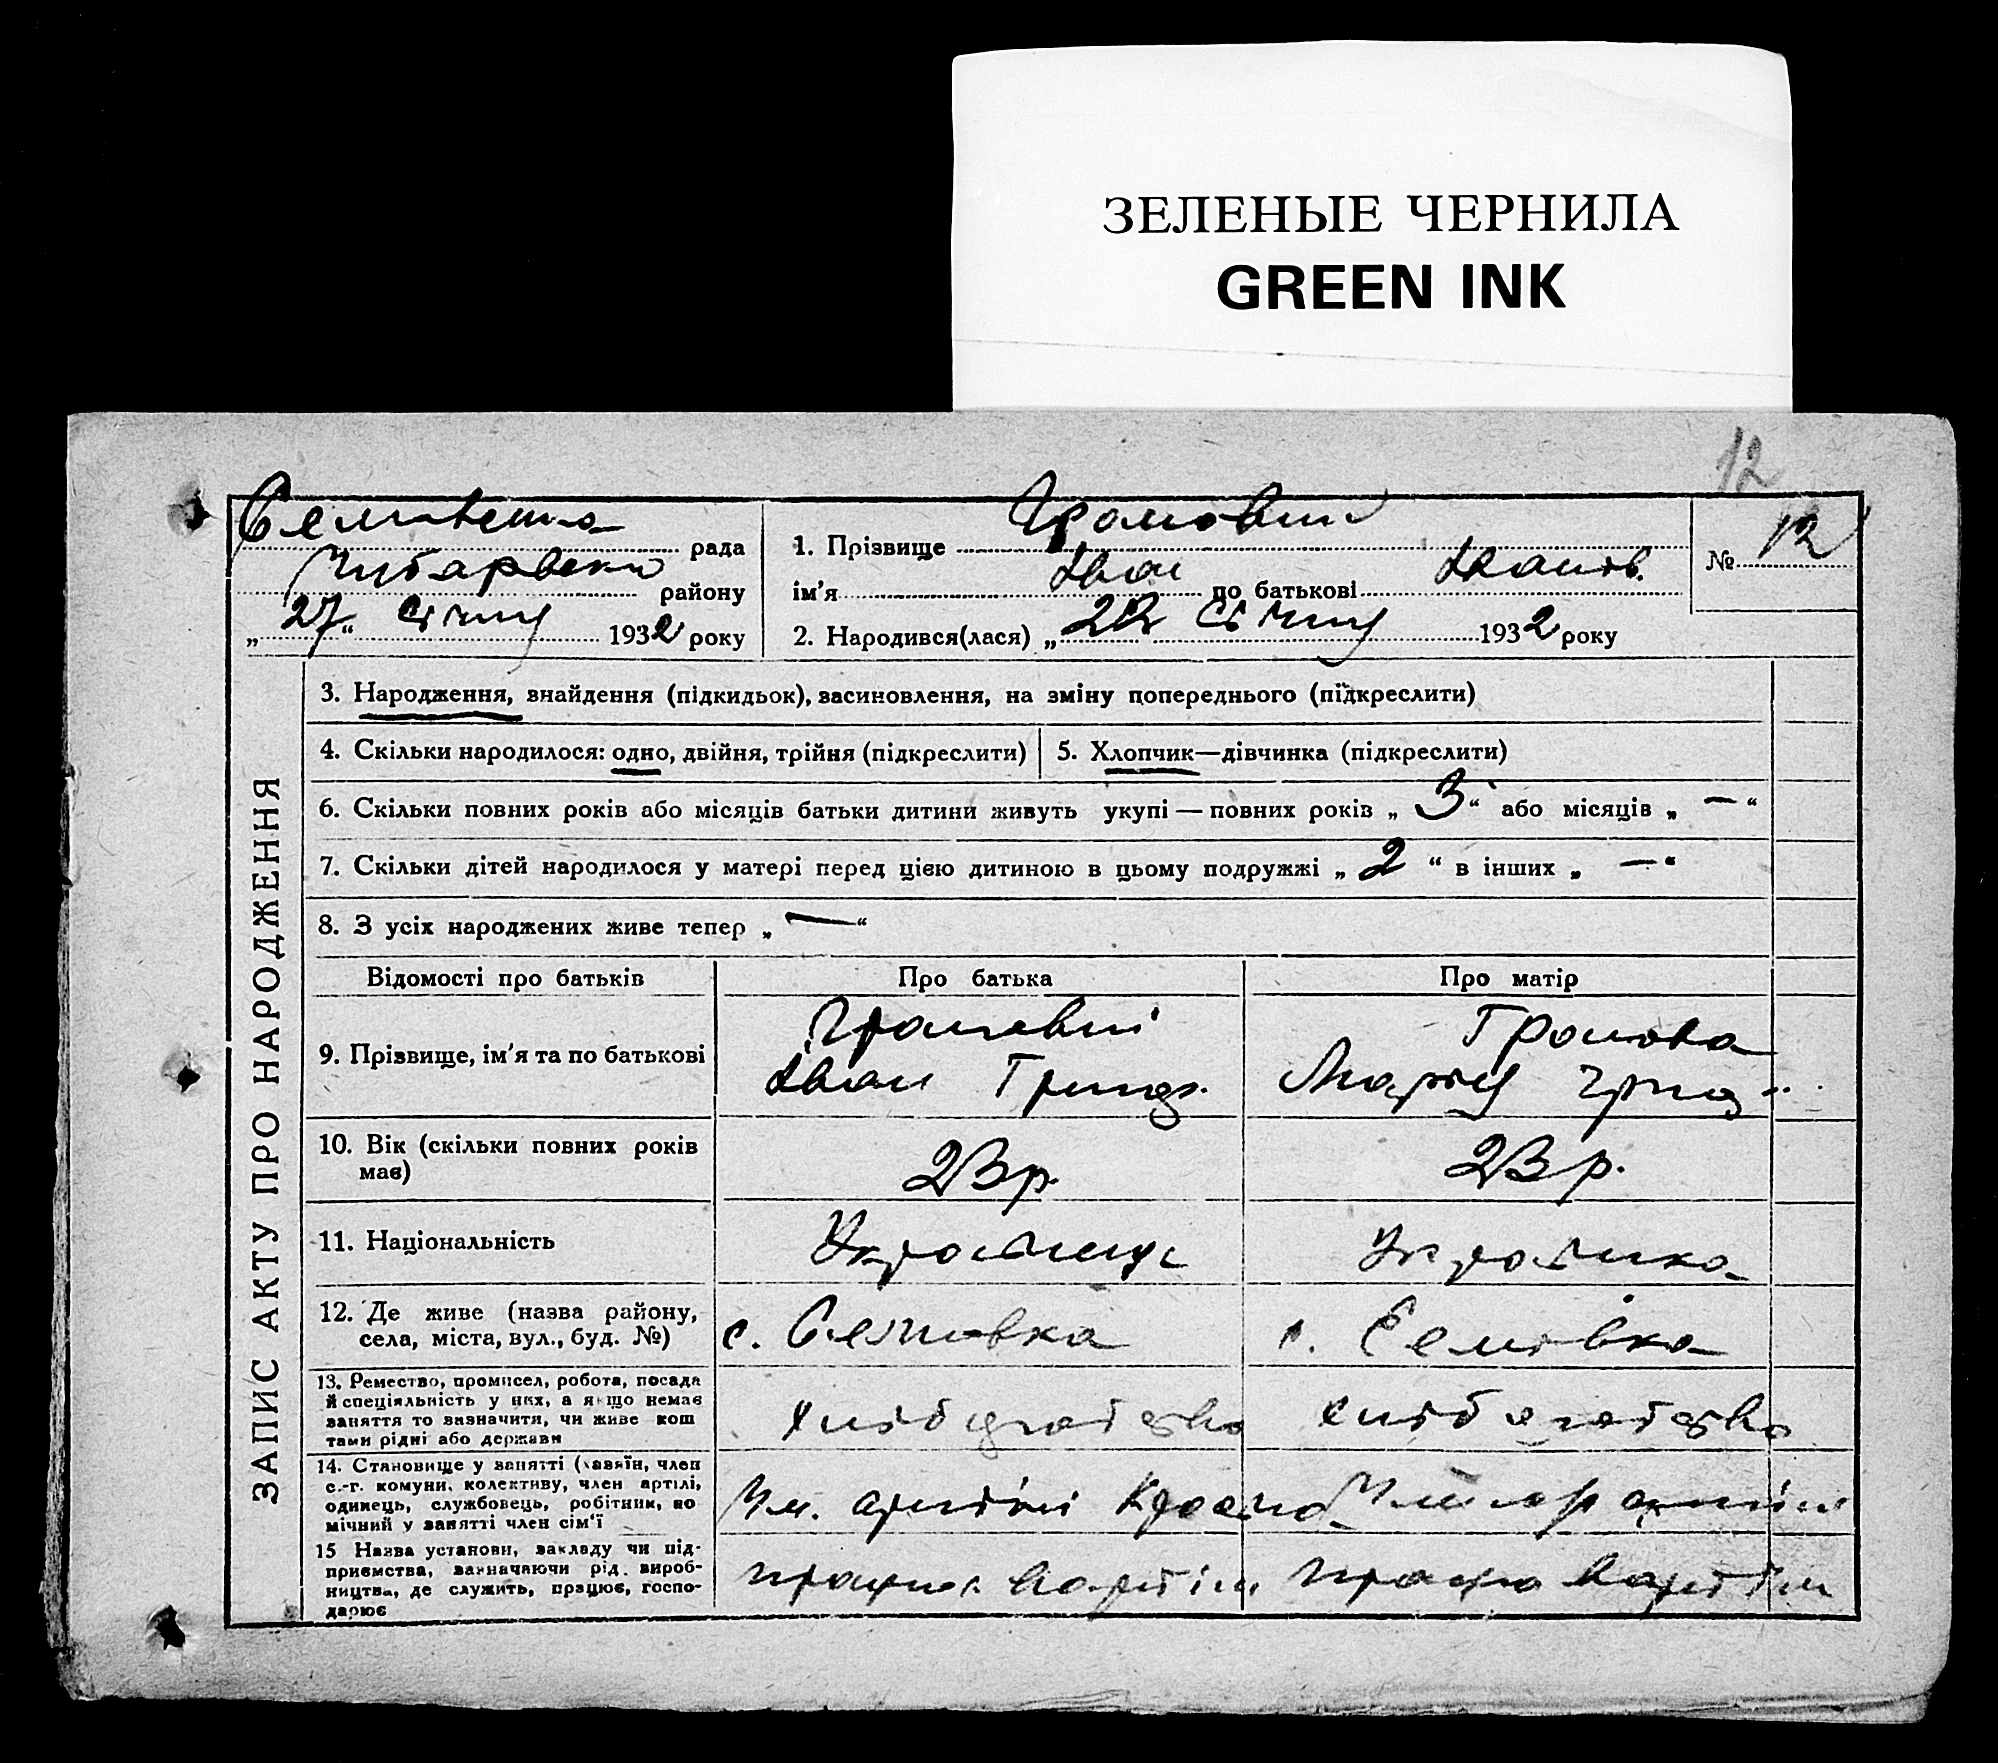 ЗЕЛЕНЫЕ ЧЕРНИЛА
GREEN INK
12
рада
району
„27“ Січня 1932 року
1. Прізвище Громовий
ім'я Іван по батькові Іванов.
2. Народився(лася) „22 Січня 1932 року
№ 12
ЗАПИС АКТУ ПРО НАРОДЖЕННЯ
3. Народження, знайдення (підкидьок), засиновлення, на зміну попереднього (підкреслити)
4. Скільки народилося: одно, двійня, трійня (підкреслити)
5. Хлопчик—дівчинка (підкреслити)
6. Скільки повних років або місяців батьки дитини живуть укупі — повних років „ 3 “ або місяців „ — “
7. Скільки дітей народилося у матері перед цією дитиною в цьому подружжі „ 2 “ в інших „ — “
8. З усіх народжених живе тепер „ — “
Відомості про батьків
Про батька
Про матір
9. Прізвище, ім'я та по батькові
Громовий
Іван Григ.
Громова
Марія Григ..
10. Вік (скільки повних років
має)
23 р.
23 р.
11. Національність
Українець
Українка
12. Де живе (назва району,
села, міста, вул., буд. №)
с. Семивка
с. Семівка
13. Ремество, промисел, робота, посада
й спеціяльність у них, а якщо немає
заняття то зазначити, чи живе кош
тами рідні або держави
хлібороботство
14. Становище у занятті (хазяїн, член
с.-г. комуни, колективу, член артілі,
одинець, службовець, робітник, по
мічний у занятті член сім'ї
Чл. артілі
15 Назва установи, закладу чи під-
приємства, зазначаючи рід вироб-
ництва, де служить, працює, госпо-
дарює
працює в артілі
працює в артілі